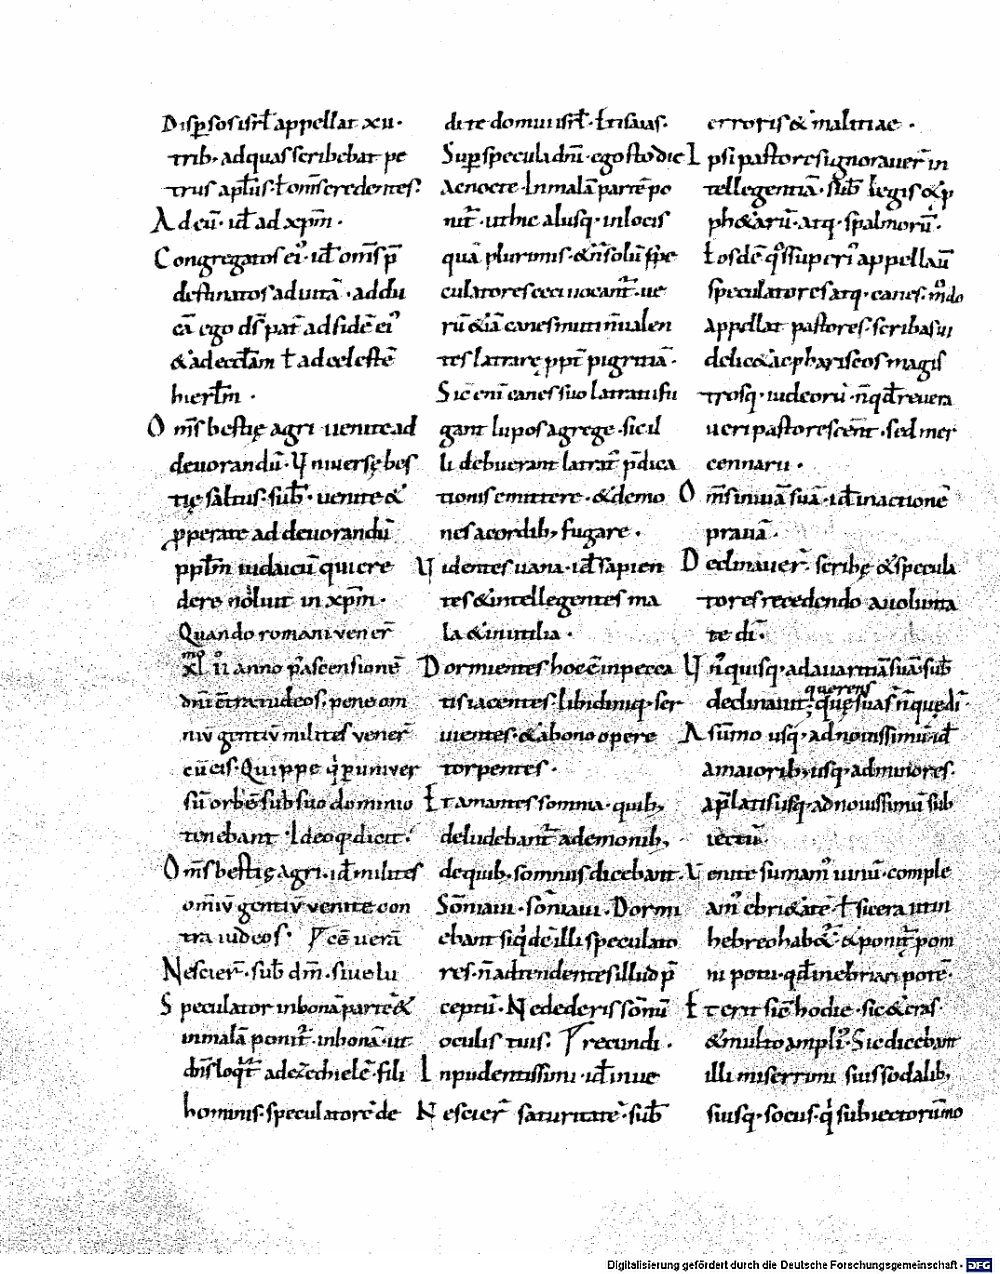 Disp̄sos isrł appellat xii·
trib; ad quas scribebat pe
trus apłus· ł om̄s credentes·
Ad eū· id ad xp̄m·
Congregatos ei· id om̄s p̄
destinatos ad uitā· addu
cā ego ds̄ pat̄ ad fidē ei
& ad eccłam ł ad celestē
hierłm·
Om̄s bestię agri uenite ad
deuorandū· Uniuersę bes
tię saltus· sub̄· uenite &
pperate ad deuorandū
ppłm iudaicū qui cre
dere noluit in xp̄m·
Quando romani vener̄
xł ii anno p̄ ascensionē
dn̄i c̄tra iudeos; pene om
niū gentiū milites vener̄
cū eis· Quippe q̄ p uniuer
sū orbē sub suo dominio
tenebant· Ideoq; dicit·
Om̄s bestię agri· id milites
omniū gentiū venite con
tra iudeos·
Nescier̄· sub̄ dm̄· siue lu
Speculator in bonā partē &
in malā ponit̄· in bonā· ut
dn̄s loqt̄ ad ezechielē· fili
hominis· speculatorē de
di te domui isrł· & isaias·
Sup specula dn̄i· ego sto die
ac nocte· In malā partē po
nit̄· ut hic aliisq; in locis
quā plurimis· & n̄ solū spe
culatores ceci uocant̄· ue
rū & iā canes muti n̄ ualen
tes latrarę ppt̄ pigritiā·
Sic eni canes suo latratu fu
gant lupos a grege· sic il
li debuerant latrat̄ p̄dica
tionis emittere· & demo
nes a cordib; fugare·
Uidentes uana· id sapien
tes & intellegentes ma
la & inutilia·
Dormientes hoc ē in pecca
tis iacentes· libidiniq; ser
uientes· & a bono opere
torpentes·
Et amantes somnia· quib;
deludebant̄ a demonib;
de quib; somniis dicebant·
Somniaui· somniaui· Dormi
ebant siqdē illi speculato
res· n̄ adtendentes illud p̄
ceptū· Ne dederis somnū
oculis tuis· recundi·
Inpudentissimi· id in ue
Nescier̄ saturitatē· sub̄
erroris & malitiae·
Ipsi pastores ignorauer̄ in
tellegentiā· sub̄ legis & p
ph&arū· atq; spalmorū·
ł os dē qs superi appellauit
speculatores atq; canes· m̊do
appellat pastores· scribas ui
delic& ac phariseos magis
trosq; iudeorū· n̄ qd reuera
ueri pastores cent· sed mer
cennarii·
Om̄s in uiā suā· id in actionē
prauā·
Declinauer̄· scribę & specula
tores recedendo a uolunta
te di·
Unquisq; ad auaritiā suā· sub̄
declinauit· querens quę suas n̄ quę di·
A sūmo usq; ad nouissimū· id
a maiorib; usq; ad minores·
ap̄latis usq; ad nouissimū sub
iectū·
Uenite sumam uinū· comple
am ebri&atē· ł sicera ut in
hebreo hab&· & ponit̄ pom
ni potu· qd inebriari potē·
Et erit sic hodie· sic & cras·
& multo ampli· Sic dicebant
illi miserrimi suis sodalib;
suisq; sociis· q̄ subiectorum o
Digitalisierung gefördert durch die Deutsche Forschungsgemeinschaft - DFG